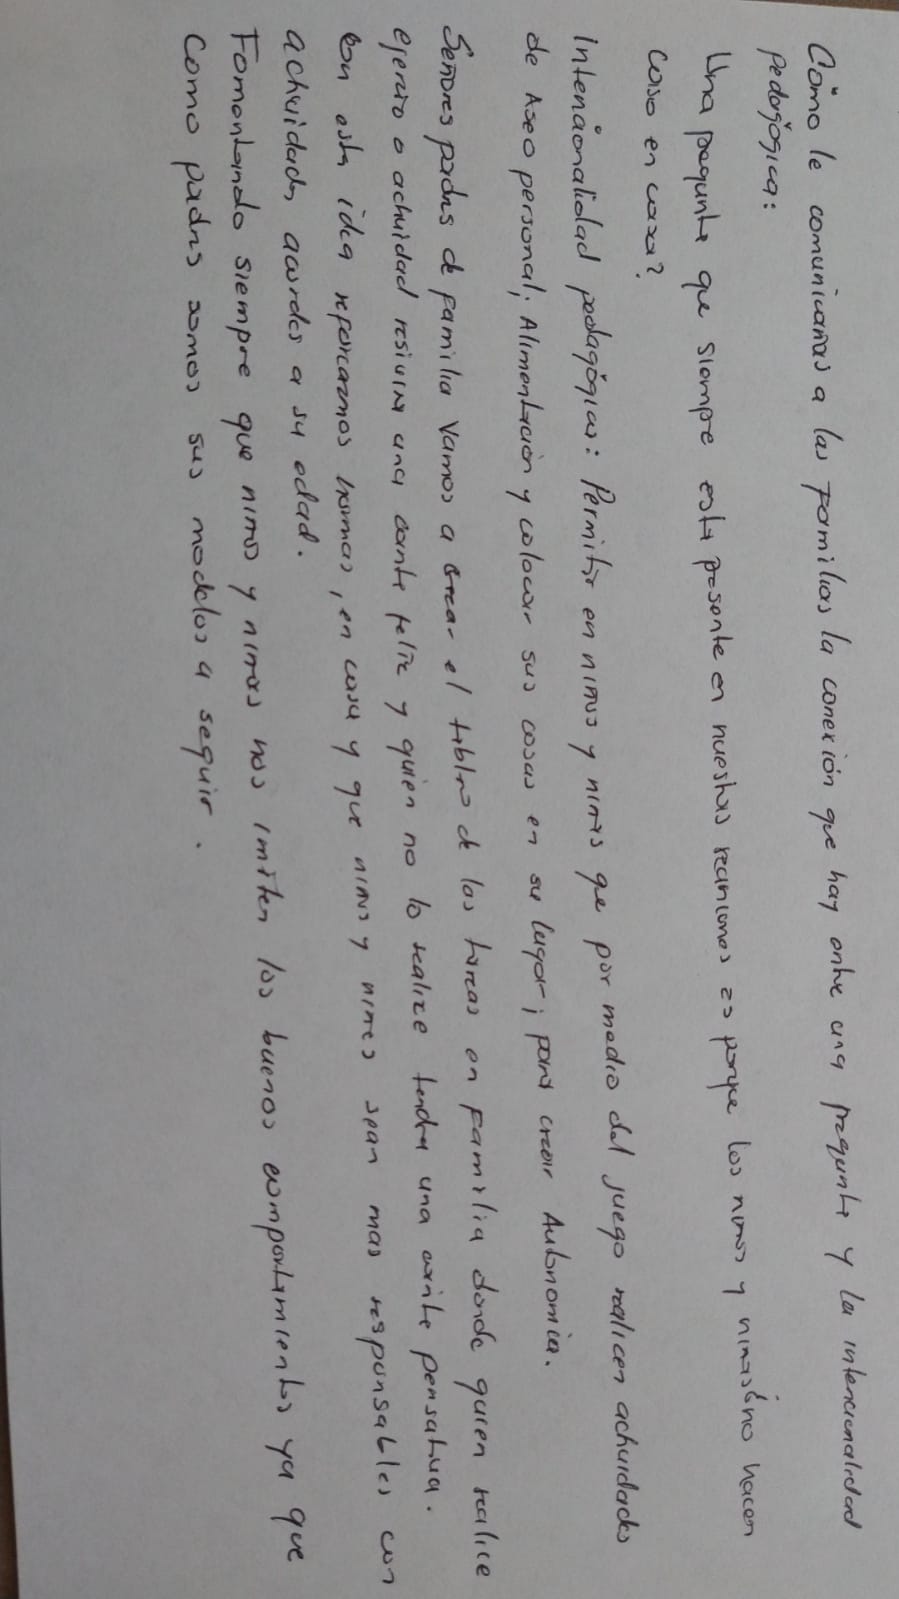 Cómo le comunicarías a las familias la conexión que hay entre una pregunta y la intencionalidad
pedagógica:
Una pregunta que siempre esta presente en nuestras reuniones es porque los niños y niñas ¿no hacen
caso en casa?
Intencionalidad pedagógica: Permitir en niños y niñas que por medio del juego realicen actividades
de Aseo personal, Alimentación y colocar sus cosas en su lugar; para crear Autonomia.
Señores padres de familia Vamos a crear el tablero de las tareas en familia donde quien realice
ejercicio o actividad recibira una carita feliz y quien no lo realize tendra una carita pensativa.
Con esta idea reforzamos normas, en casa y que niños y niñas sean mas responsables con
actividades acordes a su edad.
Fomentando siempre que niños y niñas nos imiten los buenos comportamientos ya que
como padres somos sus modelos a seguir.